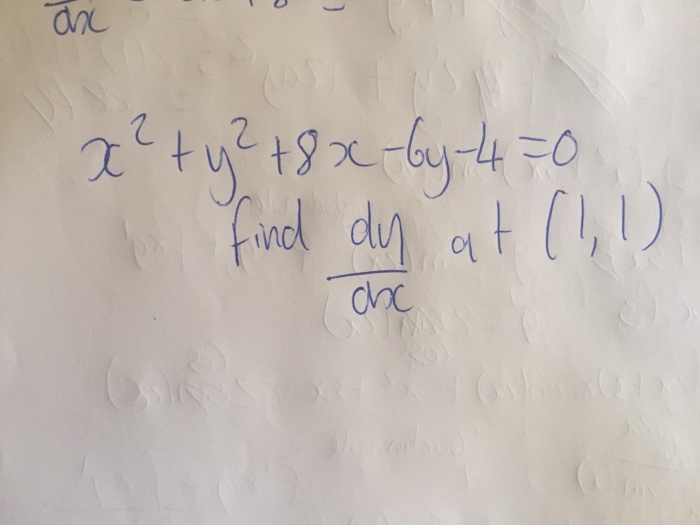 dx
x² + y² + 8x - 6y - 4 = 0
find dy/dx at (1,1)